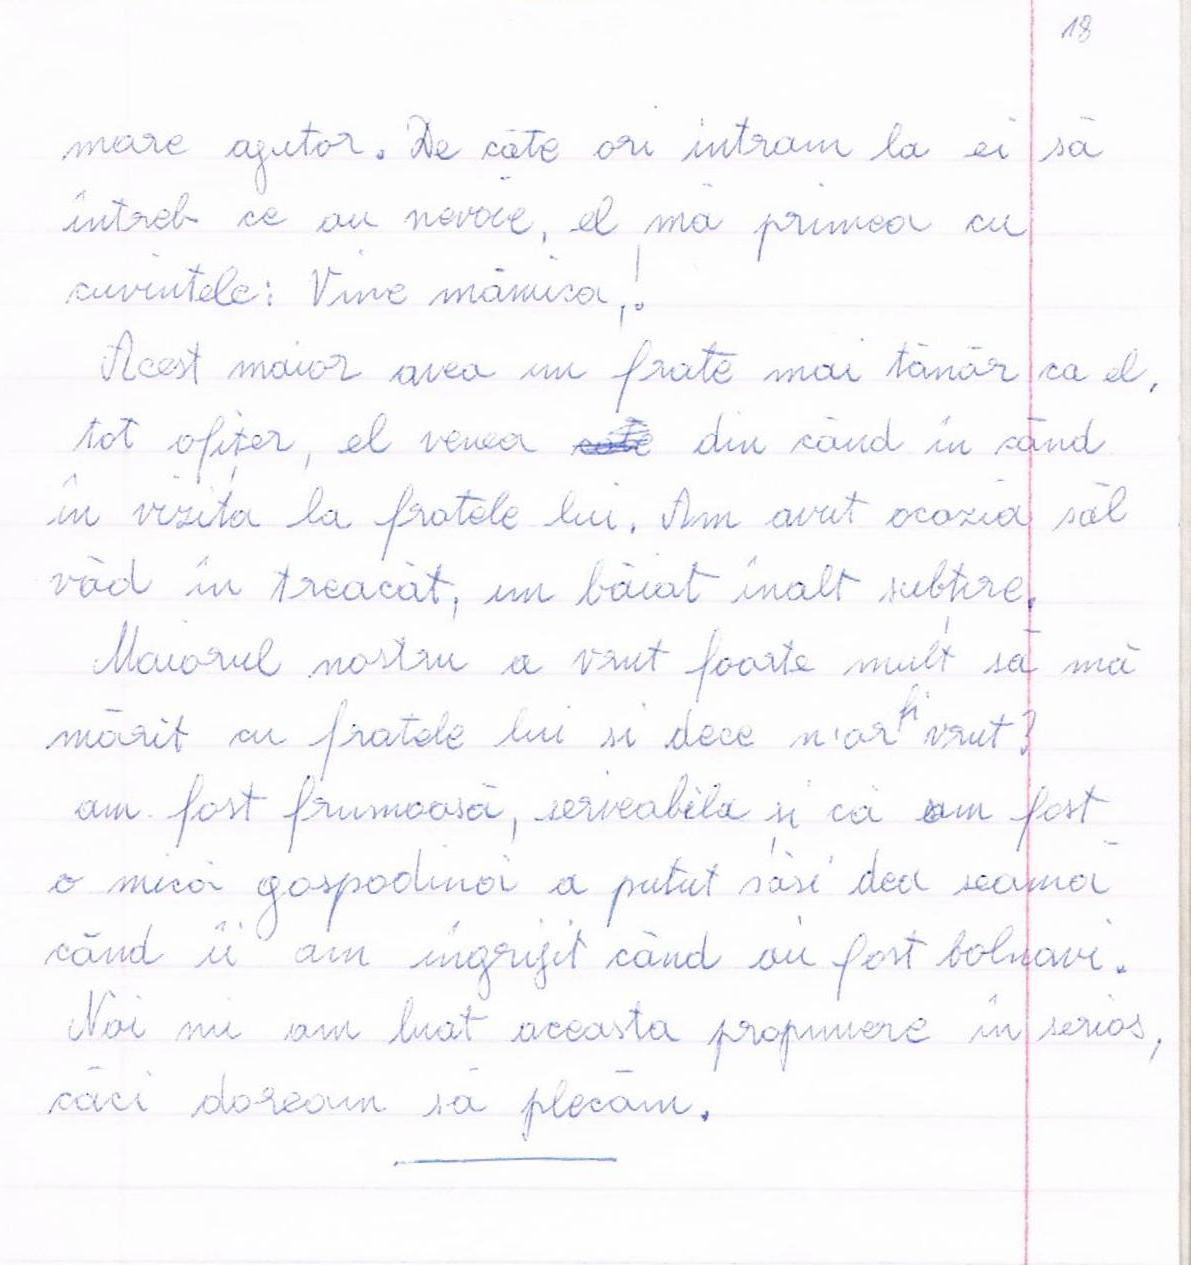 18
mare agutor. De câte ori intram la ei să
întreb ce au nevoie, el mă primea cu
cuvintele: Vine mămica!
Acest maior avea un frate mai tânăr ca el,
tot ofițer, el venea din când în când
în vizita la fratele lui. Am avut ocazia săl
văd în treacăt, un băiat înalt subțire.
Maiorul nostru a vrut foarte mult să mă
mărit cu fratele lui si dece n'ar fi vrut?
am fost frumoasă, serveabila și că am fost
o mică gospodină a putut săsi dea seamă
când îi am îngrijit când au fost bolnavi.
Noi nu am luat aceasta propunere în serios,
căci doream să plecăm.